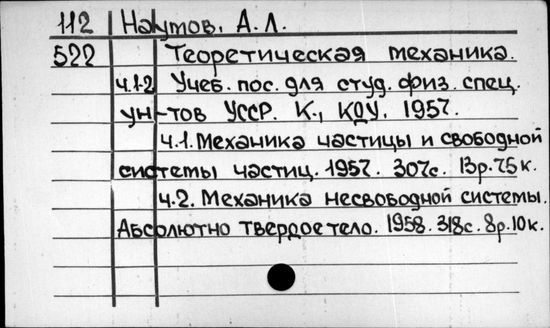 112 Наумов, А.Л.
522 Теоретическая механика.
ч.1-2 Учеб. пос. для студ. физ. спец.
ун-тов УССР. К., КДУ. 1957.
ч.1. Механика частицы и свободной
системы частиц. 1957. 307с. 13р.75к.
ч.2. Механика несвободной системы.
Абсолютно твердое тело. 1958. 318с. 8р.10к.